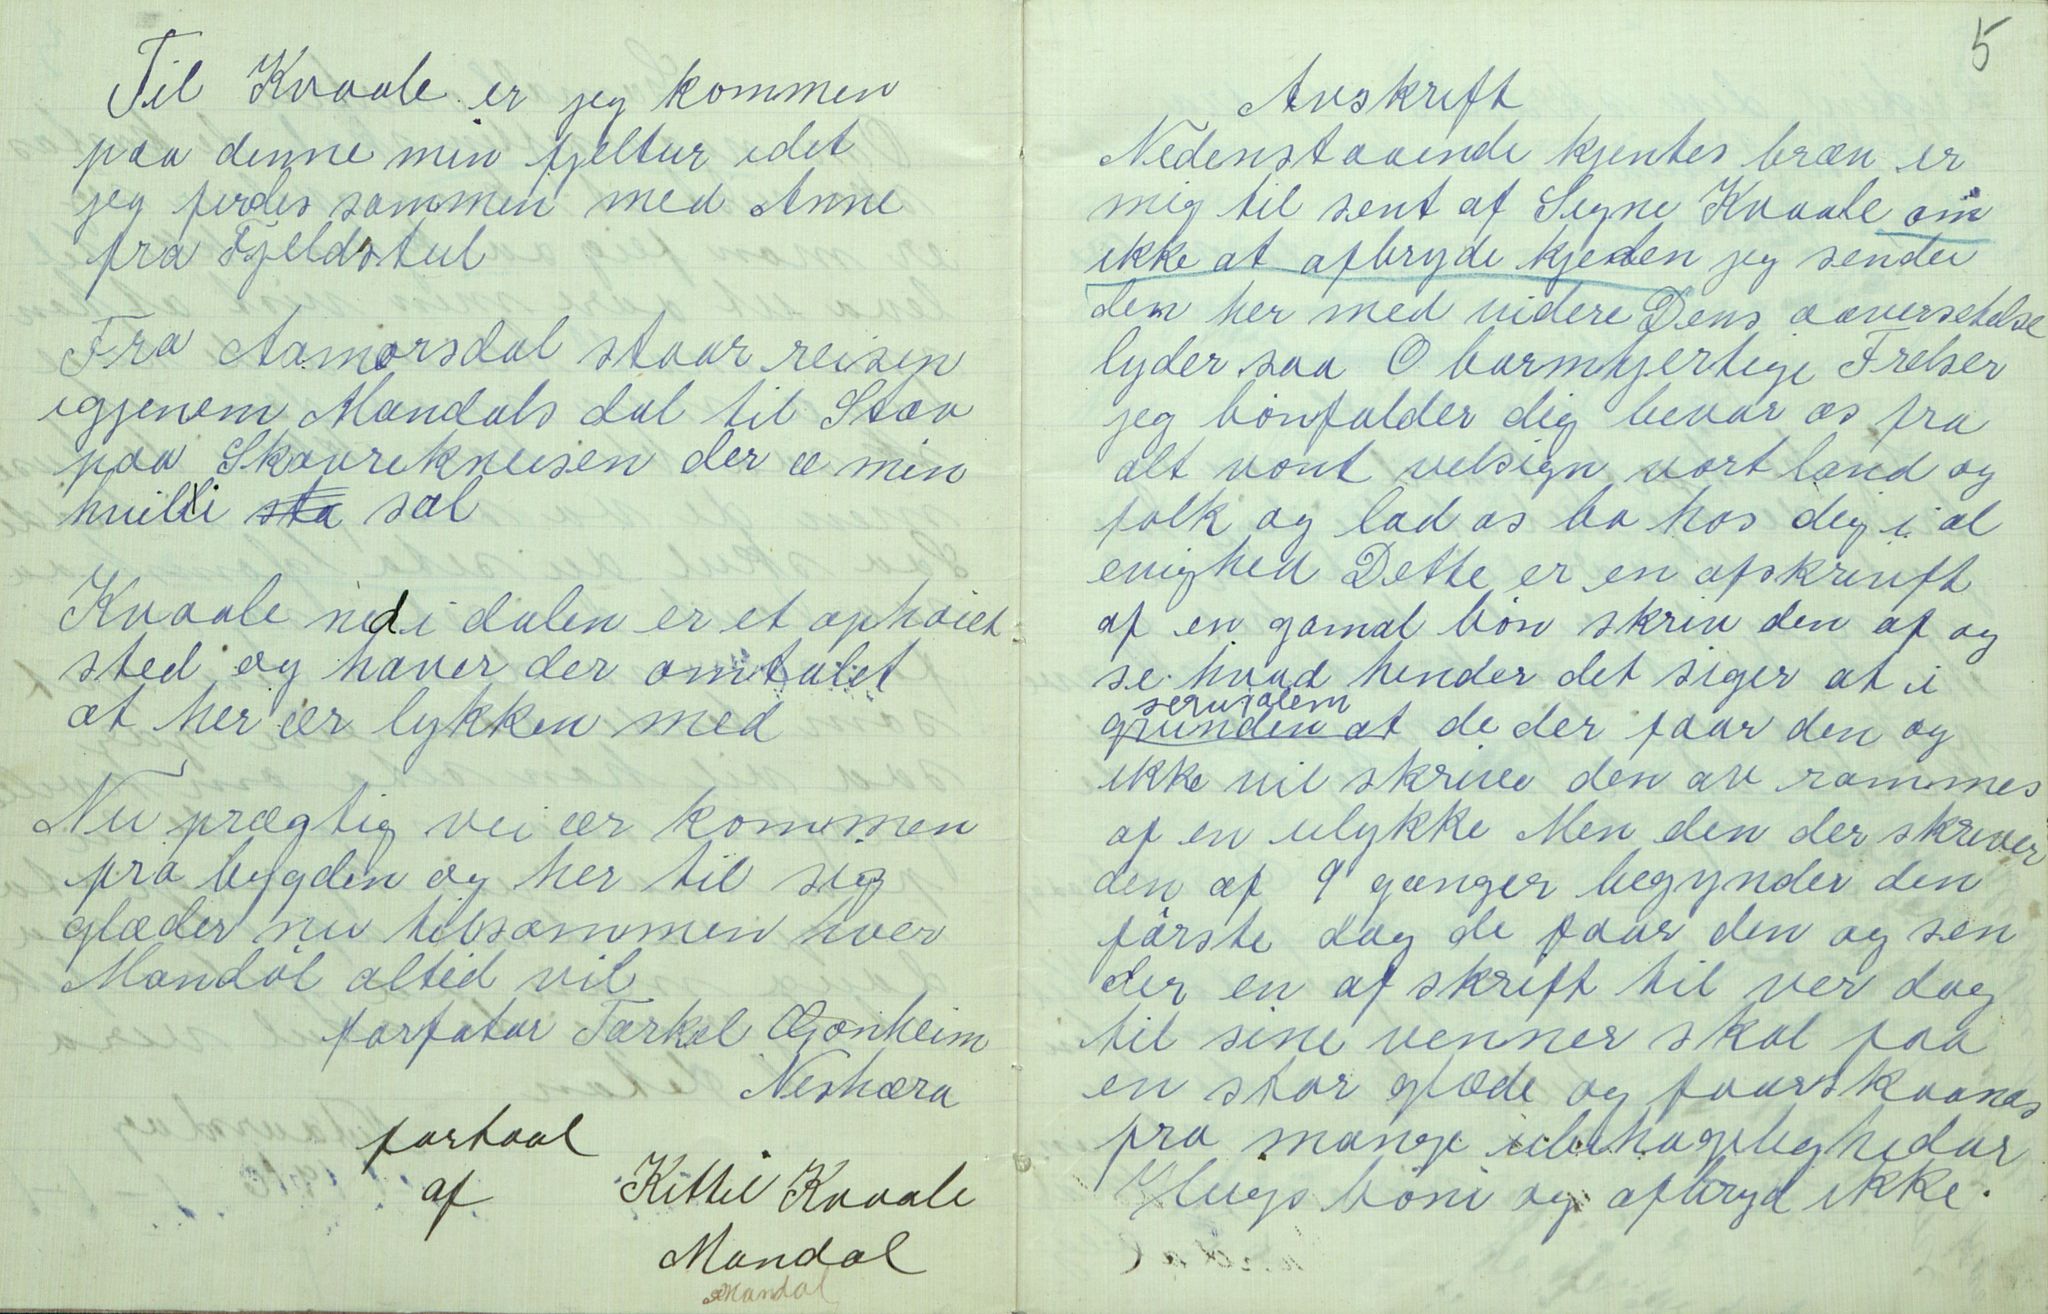 Til Kvaale er jeg kommen
paa denne min fjeltur idet
jeg ferdes sammen med Anne
fra Fjeldstul
Fra Aamorsdal staar reisen
igjenem Mandals dal til Stav
paa Skavrekneisen der æ min
hvilli sta sal
Kvaale ned i dalen er et ophöiet
sted og haver der omtalet
at her ær lykken med
Nu prægtig vei ær kommen
fra bygden og her til sig
glæder nu tilsammen hver
Mandöl altid vil
forfatar Tarkel Ögonheim
Neshæra
fortaal
af Kittil Kvaale
Mandal
Mandal
5
Avskrift
Nedenstaaende kjentes bræn er
mig til sent af Signe Kvaale om
ikke at afbryde kjeden jeg sender
den her med videre Dens aaversetelse
lyder saa O barmhjertige Frelser
jeg bönfalder dig bevar os fra
alt vont velsign vort land og
folk og lad os bo hos dig i al
evighed Dette er en afskrivft
af en gamal bön skriv den af og
se hvad hender det siger at i
serusalem
grunden at de der faar den og
ikke vil skrive den av rammes
af en ulykke Men den der skriver
den af 9 ganger begynder den
förste dag de faar den og sen
der en af skrift til ver dag
til sine venner skal faa
en stor glæde og faar skaanes
fra mange ubehageligheder
Hugs böni og afbryd ikke.